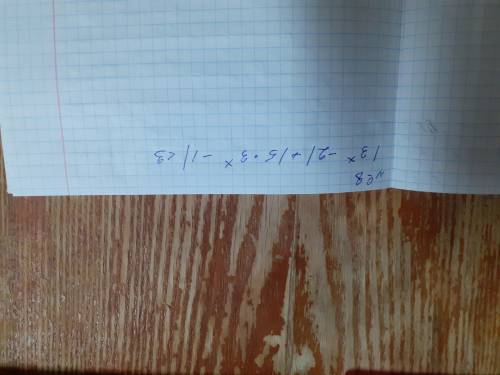 №8
|3ˣ -2|+|5·3ˣ -1|<3